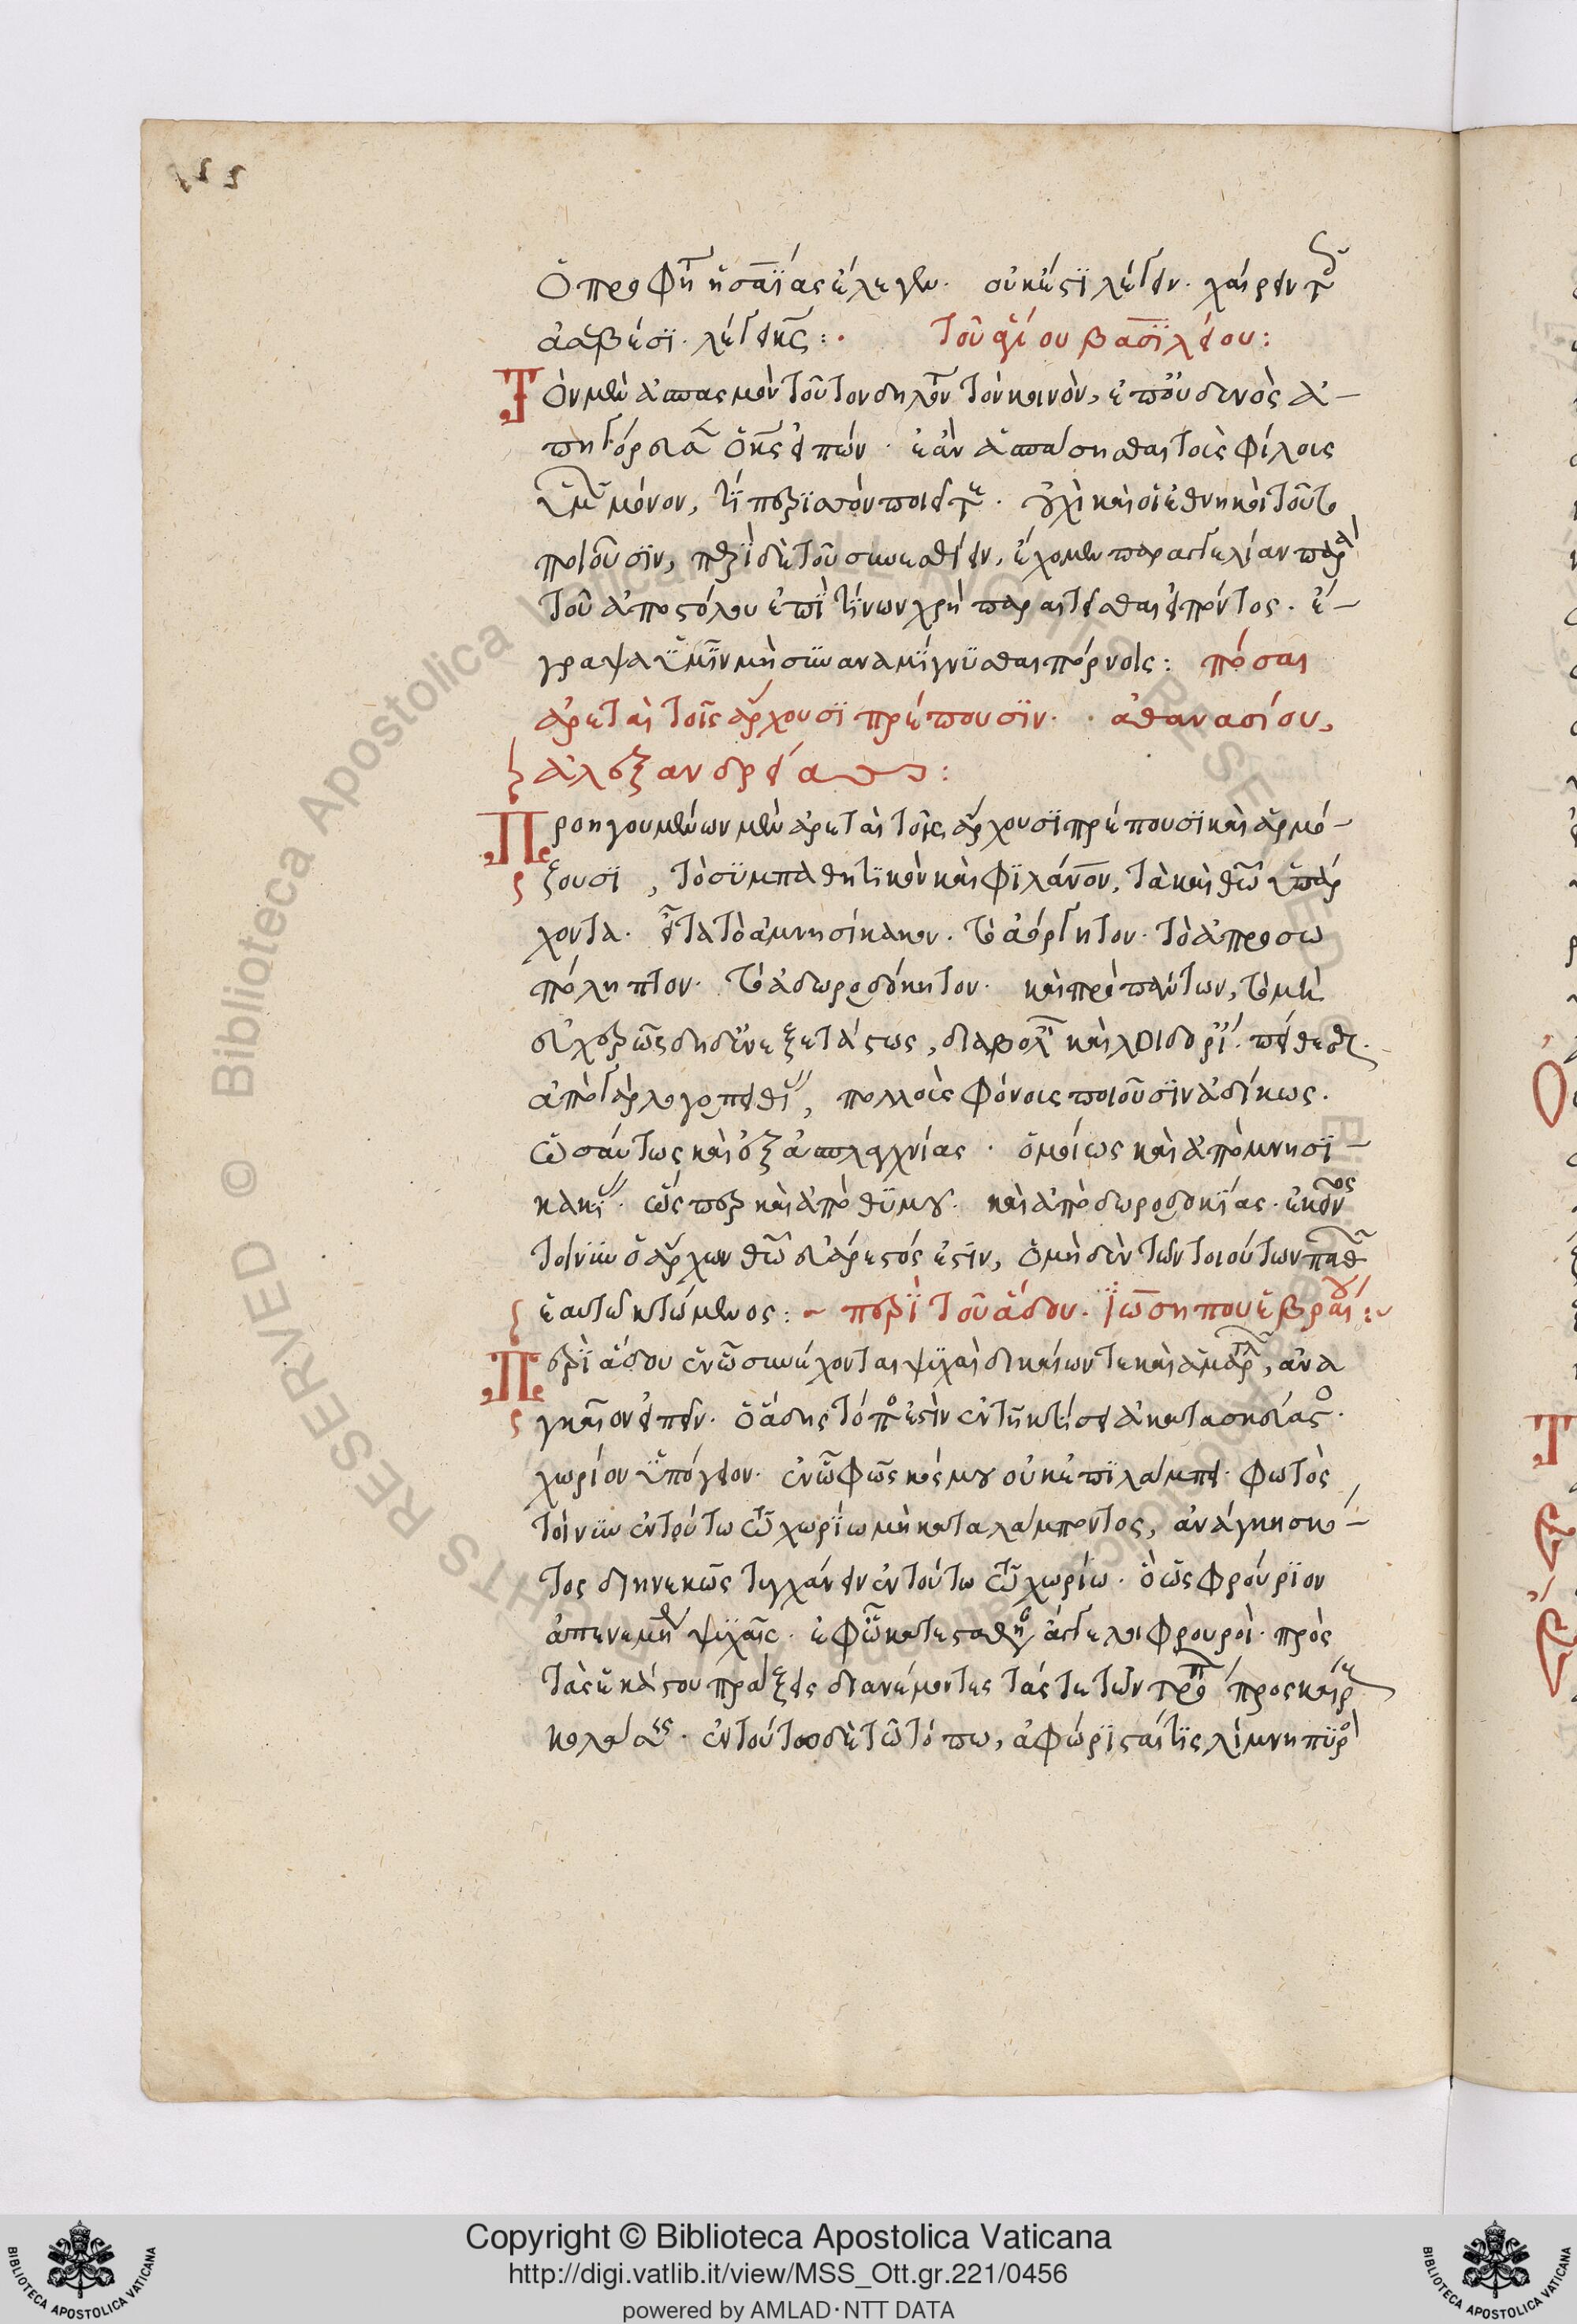 ὁ προφή ἡσαΐας ἔλεγεν. οὐκ ἔστι λέγειν. χαίρειν τοῖς
ἀσεβέσι. λέγει κς : · Τοῦ ἁγίου βασιλείου :
Τὸν μὲν ἀσπασμὸν τοῦτον δηλονότι τὸν κοινὸν, ἐπ' οὐδενὸς ἀ-
πηγόρευσεν ὁ κς εἰπών. ἐὰν ἀσπάσησθαι τοῖς φίλοις
ὑμῶν μόνον, τί περισσὸν ποιεῖτε. οὐχὶ καὶ οἱ ἐθνηκοὶ τοῦτο
ποιοῦσιν, περὶ δὲ τοῦ συνεσθίειν, ἔχομεν παραγγελίαν παρὰ
τοῦ ἀποστόλου ἐπὶ τίνων χρὴ παραιτεῖσθαι εἰπόντος. ἔ-
γραψα ὑμῖν μὴ συναναμίγνυσθαι πόρνοις : πόσαι
ἀρεταὶ τοῖς ἄρχουσι πρέπουσιν. · ἀθανασίου,
ἀλεξανδρείας :
Προηγουμένων μὲν ἀρεταὶ τοῖς ἄρχουσι πρέπουσι καὶ ἁρμό-
ζουσι, τὸ συμπαθητικὸν καὶ φιλάνον, τὰ καὶ θῶ ὑπάρ
χοντα. εἶτα τὸ ἀμνησίκακον. τὸ ἀόργητον. τὸ ἀπροσω
πόληπτον. τὸ ἀδωροδόκητον. καὶ πρὸ πάντων, τὸ μὴ
εὐχερῶς δη δίνε ξετάσεως, διαβολῇ καὶ λοιδορίᾳ. πείθεσθαι.
ἀπὸ γὰρ λογοπειθίας, πολλοῖς φόνοις ποιοῦσιν ἀδίκως.
ὡσαύτως καὶ ἐξ ἀσπλαγχνίας. ὁμοίως καὶ ἀπὸ μνησι-
κακίας. ὥς περ καὶ ἀπὸ θυμοῦ. καὶ ἀπὸ δωροδοκίας. ἐκεῖνος
τοίνυν ὁ ἄρχων θῶ εὐάρεστός ἐστιν, ὁ μηδὲν τῶν τοιούτων παθῶν
ἑαυτῶ κτώμενος : ~ περὶ τοῦ ἅδου. ἰωσήπου ἑβραίου :
Περὶ ἅδου ἐν ὧ συνέχονται ψυχαὶ δικαίων τε καὶ ἁμαρτωλῶν, ἀνα
γκαῖον εἰπεῖν. ὁ ἅδης τόπος ἐστὶν ἐν τῆ κτίσει ἀκατασκεύαστος.
χωρίον ὑπόγειον. ἐν ὧ φῶς κόσμου οὐκ ἐπιλάμπει. φωτὸς
τοίνυν ἐν τούτω τῶ χωρίω μὴ καταλάμποντος, ἀνάγκη σκό-
τος διηνεκῶς τυγχάνειν ἐν τούτω τῶ χωρίω. ὃ ὡς φρούριον
ἀπενεμήθη ψυχαῖς. ἐφ' ὧ κατεστάθησαν ἄγγελοι φρουροὶ. πρὸς
τὰς ἑκάστου πράξεις διανέμοντες τάς τε τῶν τρόπων προσκαίρους
κολάσεις. ἐν τούτω δὲ τῶ τόπω, ἀφώρισταί τις λίμνη πυρὸς
Copyright © Biblioteca Apostolica Vaticana
http://digi.vatlib.it/view/MSS_Ott.gr.221/0456
powered by AMLAD·NTT DATA